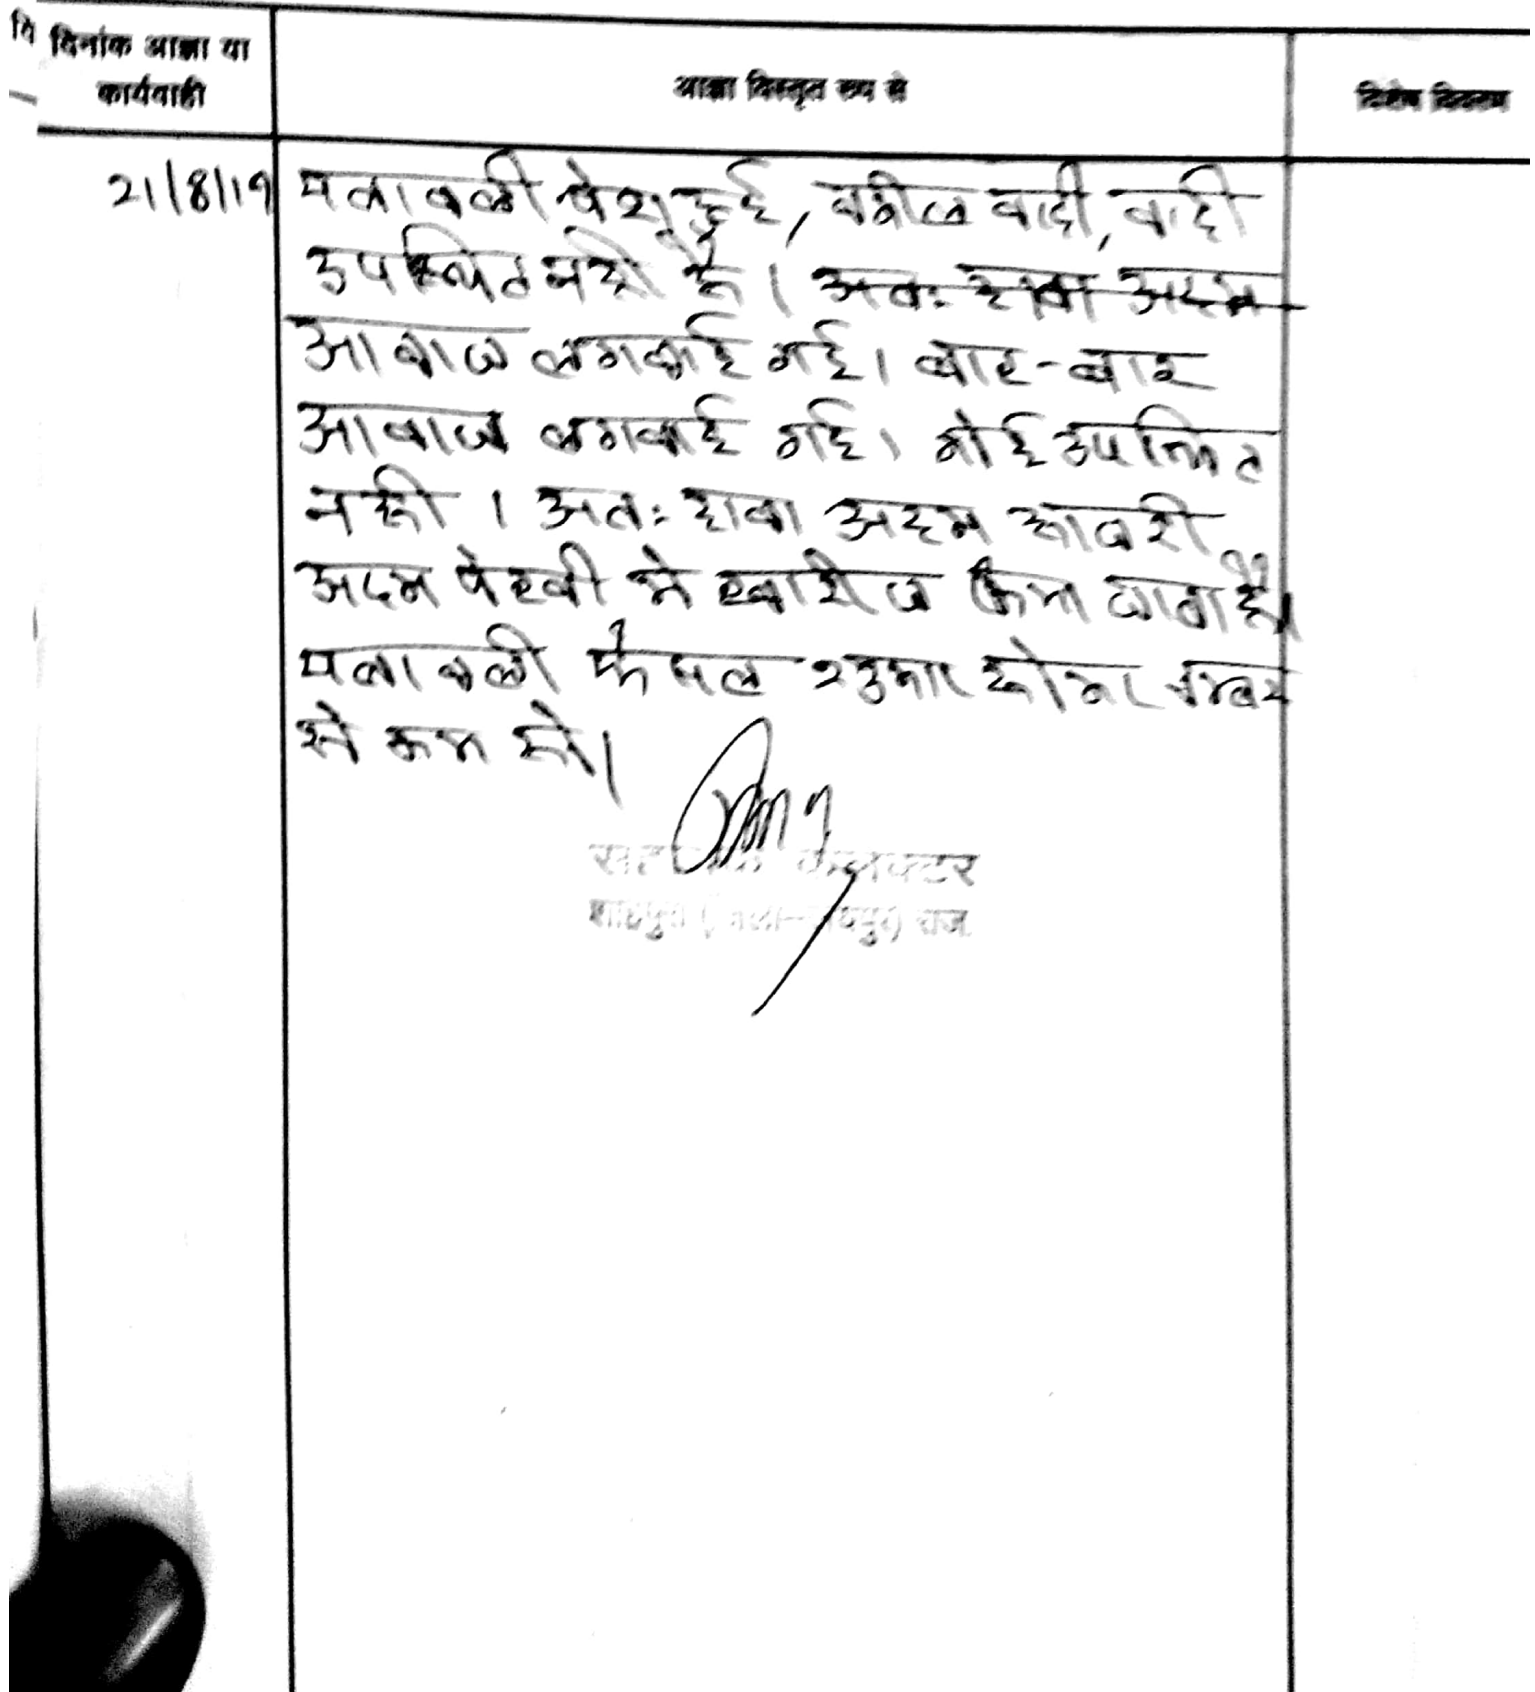 दिनांक आज्ञा या
कार्यवाही
आज्ञा विस्तृत रूप से
विशेष विवरण
21/8/19
पत्रावली पेश हुई, वकील वादी, वादी
उपस्थित नही है। अतः दावा अदम
आवाज लगवाई गई। बार-बार
आवाज लगवाई गई। कोई उपस्थित
नही। अतः दावा अदम हाजरी
अदम पेरवी मे खारीज किया जाता है।
पत्रावली फैसल शुमार होकर नम्बर
से कम हो।
सहायक कलक्टर
शाहपुरा (जिला-जयपुर) राज.